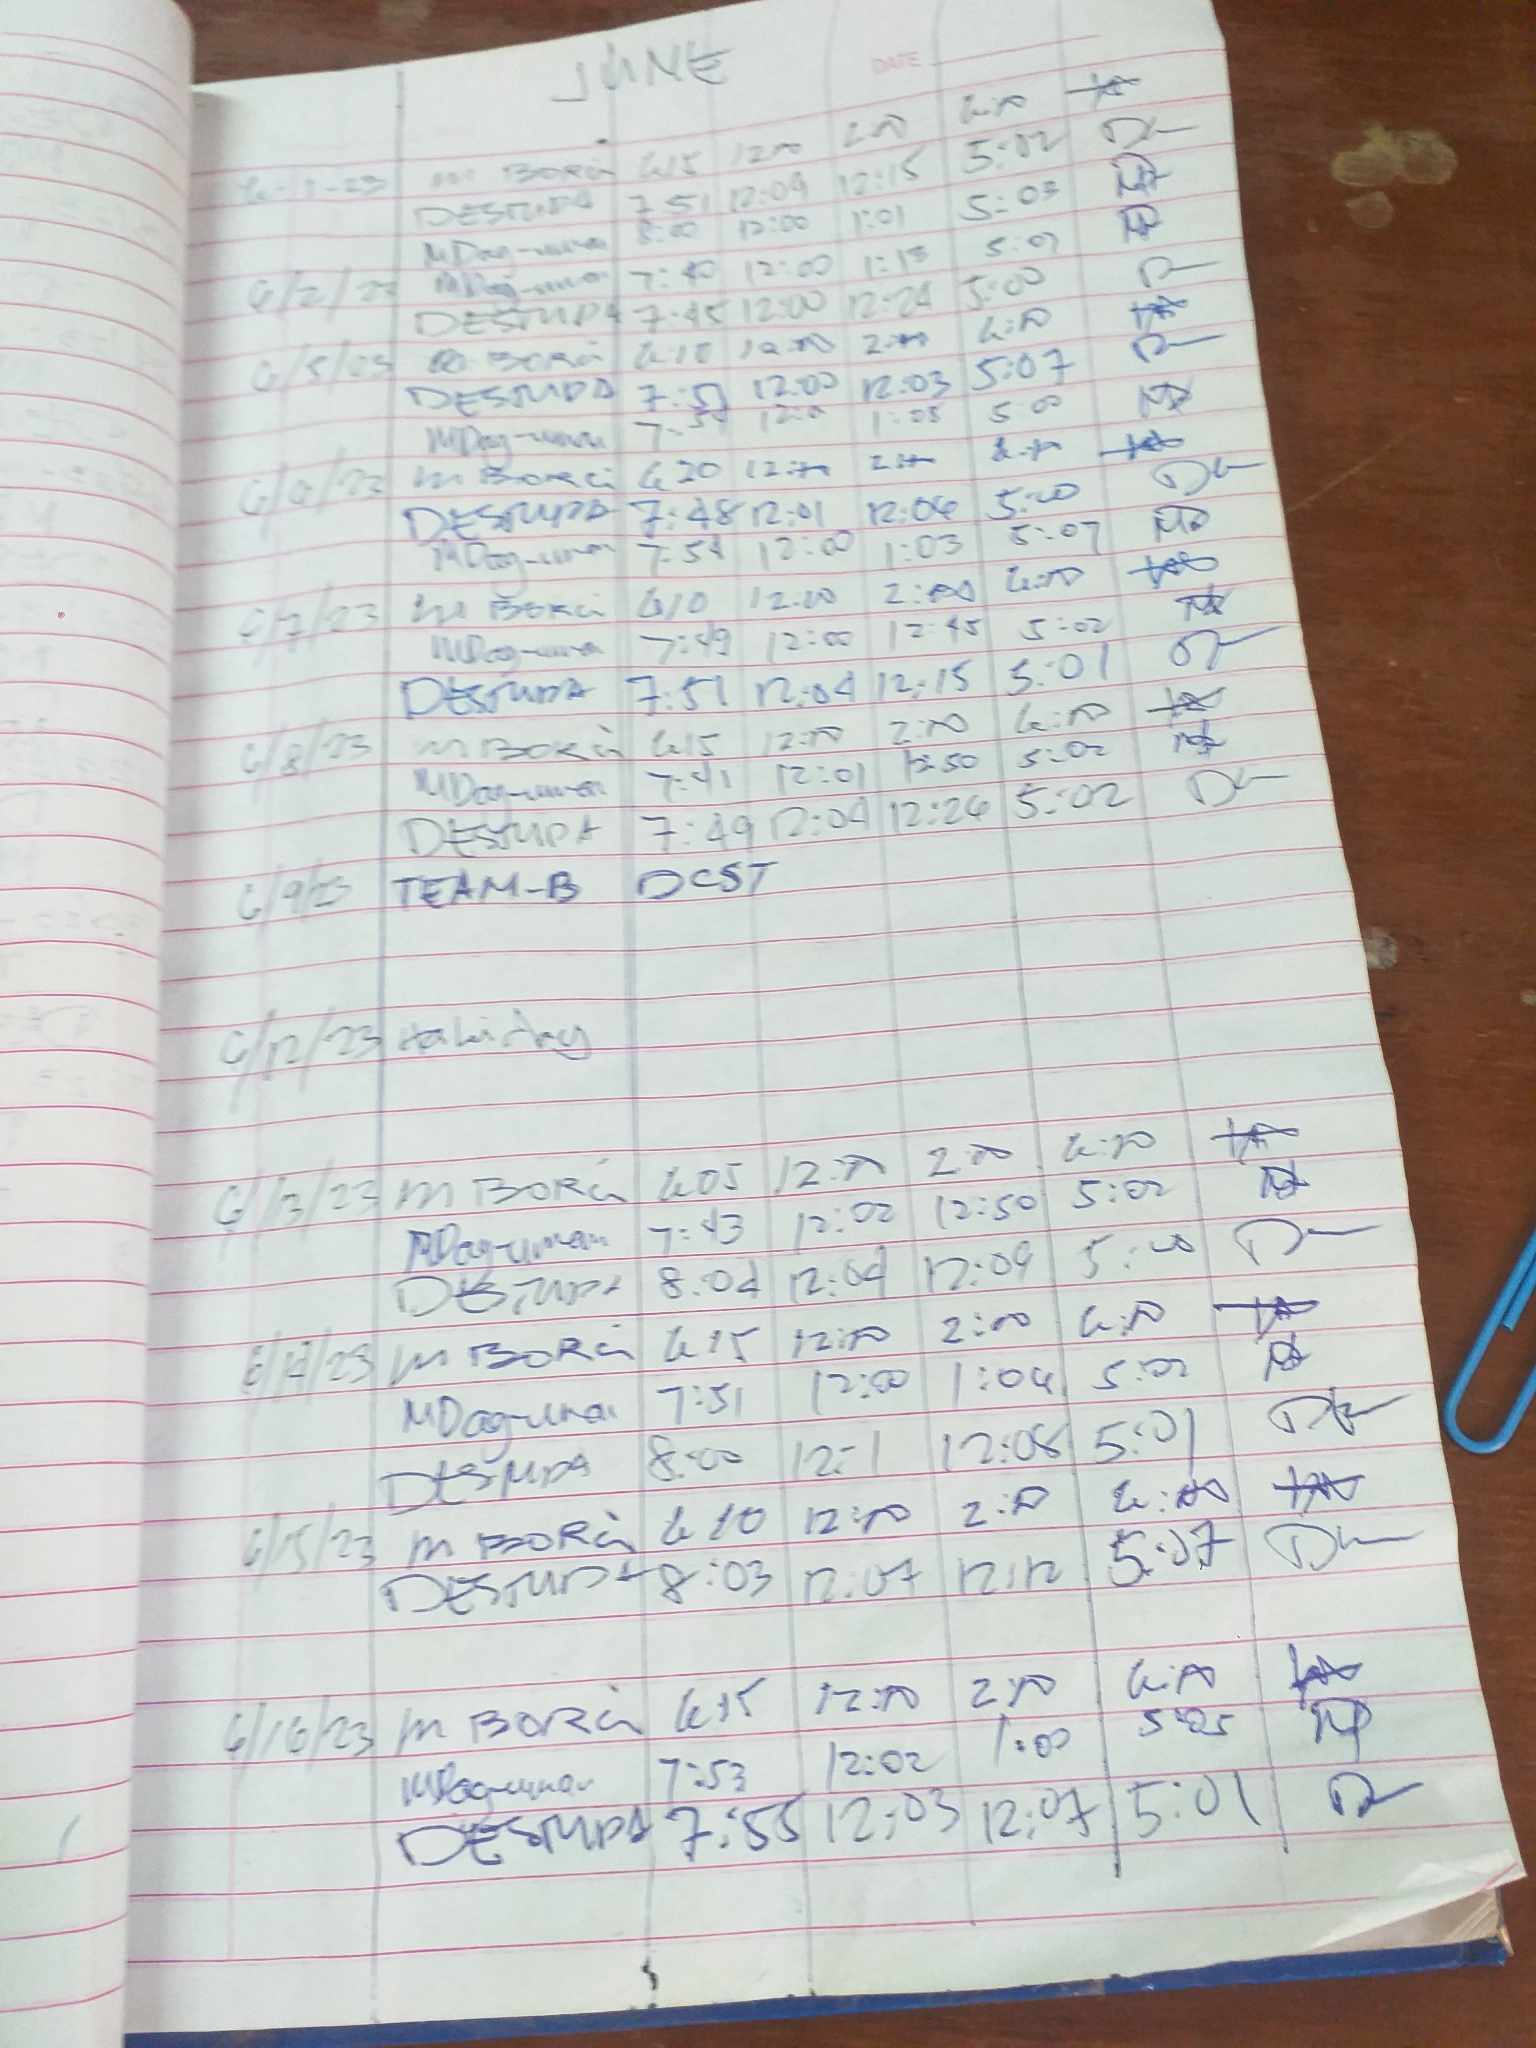 JUNE
DATE
6-1-23 M BORCI 615 12:00 2:00 6:00
DESTUPA 7:51 12:09 12:15 5:02
MDag-uman 8:00 12:00 1:01 5:03
6/2/23 MDag-uman 7:40 12:00 1:13 5:07
DESTUPA 7:45 12:00 12:24 5:00
6/5/23 M BORCI 610 12:00 2:00 6:00
DESTUPA 7:51 12:00 12:03 5:07
MDag-uman 7:54 12:01 1:05 5:00
6/6/23 M BORCI 620 12:00 2:00 6:00
DESTUPA 7:48 12:01 12:06 5:00
MDag-uman 7:54 12:00 1:03 5:07
6/7/23 M BORCI 610 12:00 2:00 6:00
MDag-uman 7:49 12:00 12:45 5:02
DESTUPA 7:51 12:04 12:15 5:01
6/8/23 M BORCI 615 12:00 2:00 6:00
MDag-uman 7:41 12:01 12:50 5:02
DESTUPA 7:49 12:04 12:26 5:02
6/9/23 TEAM-B DCST
6/12/23 Holiday
6/13/23 M BORCI 605 12:00 2:00 6:00
MDag-uman 7:43 12:02 12:50 5:02
DESTUPA 8:04 12:04 12:09 5:00
6/14/23 M BORCI 615 12:00 2:00 6:00
MDag-uman 7:51 12:00 1:06 5:02
DESTUPA 8:00 12:1 12:08 5:01
6/15/23 M BORCI 610 12:00 2:00 6:00
DESTUPA 8:03 12:07 12:12 5:07
6/16/23 M BORCI 615 12:00 2:00 6:00
MDag-uman 7:53 12:02 1:00 5:05
DESTUPA 7:55 12:03 12:07 5:01